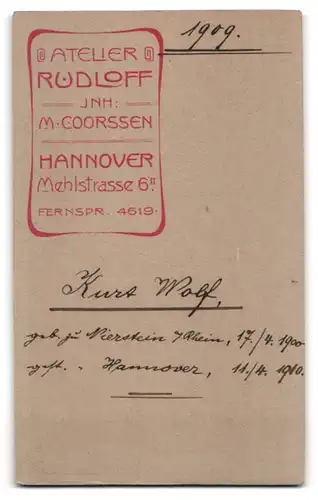 1909.
ATELIER
RUDLOFF
JNH:
M. COORSSEN
HANNOVER
Mehlstrasse 6II
FERNSPR. 4619.
Kurt Wolf,
geb. zu Nierstein /Rhein, 17./4. 1900
gest. " Hannover, 11./4. 1910.